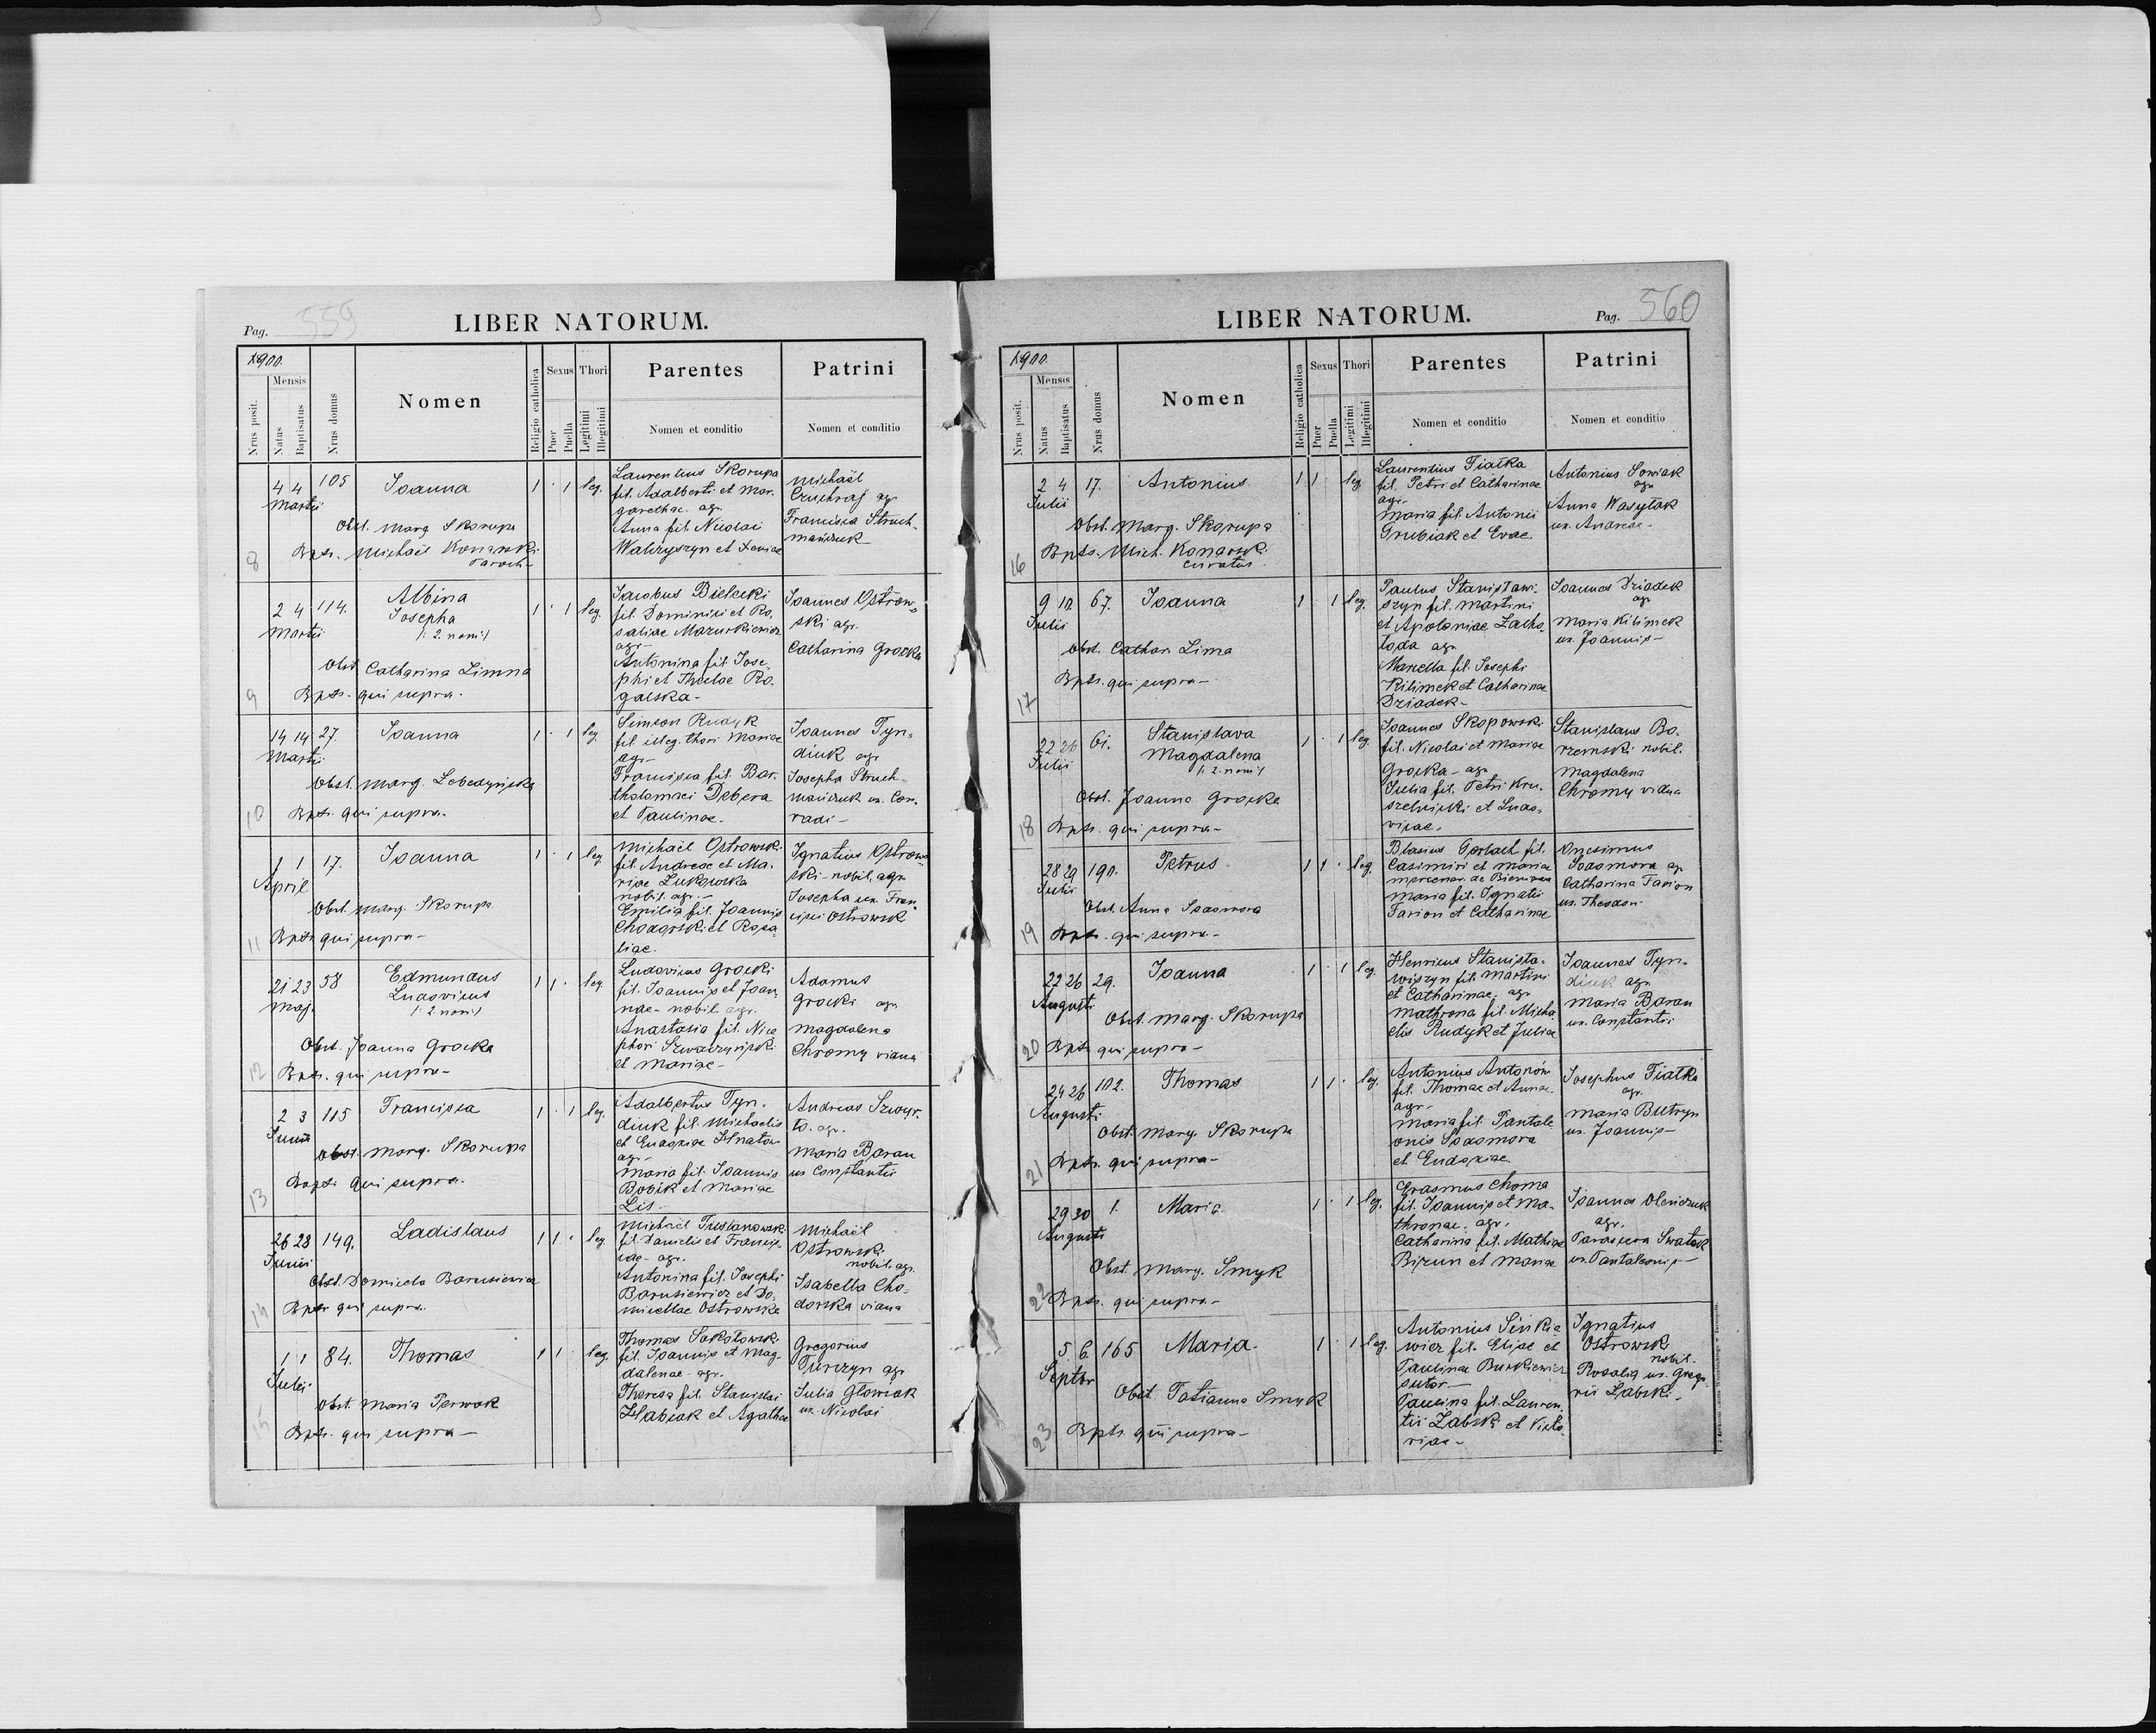 Pag. 559
LIBER NATORUM.
1900.
Nrus posit.
Mensis
Natus
Baptisatus
Nrus domus
Nomen
Religio catholica
Sexus
Puer
Puella
Thori
Legitimi
Illegitimi
Parentes
Nomen et conditio
Patrini
Nomen et conditio
8
4 4 105 Joanna 1 · 1 leg.
Martii
Obst. Marg. Skorupa
Bpts. Michael Konarski
Paroch
Laurentius Skorupa
fil. Adalberti et Mar-
garethae agr.
Anna fil. Nicolai
Walczyszyn et Xeniae
Michael
Czuchraj agr
Francisca Struch-
mańczuk
9
2 4 114. Albina
Josepha
/: 2. nom:/
1 · 1 leg.
Martii
Obst. Catharina Limna
Bpts. qui supra.
Jacobus Bielecki
fil. Dominici et Ro-
saliae Mazurkiewicz
agr-
Antonina fil. Jose-
phi et Theclae Ro-
galska-
Joannes Ostrow-
ski agr.
Catharina Grocka
10
14 14 27 Joanna 1 · 1 leg.
Martii
Obst. Marg. Lebedyńska
Bpts. qui supra.
Simeon Rudyk
fil. illeg. thori Mariae
agr-
Francisca fil. Bar-
tholomaei Debera
et Paulinae.
Joannes Tyn-
diuk agr
Josepha Struch-
mańczuk ux. Con-
radi-
11
1 1 17. Joanna 1 · 1 leg
April
Obst. Marg. Skorupa
Bpts qui supra-
Michael Ostrowski
fil. Andreae et Ma-
riae Zukowska
nobil. agr.-
Emilia fil. Joannis
Chodorski et Rosa-
liae.
Ignatius Ostrow-
ski-nobil. agr.
Josepha ux. Fran-
cisci Ostrowsk
12
21 23 58 Edmundus
Ludovicus
/: 2 nom:/
1 1 · leg
Maj.
Obst. Joanna Grocka
Bpts. qui supra-
Ludovicus Grocki
fil. Joannis et Joan-
nae- nobil agr.
Anastasia fil. Nice-
phori Szwaczyński
et Mariae-
Adamus
Grocki agr.
Magdalena
Chromy vidua
13
2 3 115 Francisca 1 · 1 leg.
Junii
Obst. Marg. Skorupa
Bapt. qui supra.
Adalbertus Tyn-
diuk fil. Michaelis
et Eudoxiae Hnatow
agr-
Maria fil. Joannis
Bobik et Mariae
Lis-
Andreas Szwyr-
to. agr.
Maria Baran
ux Constantii
14
26 28 149. Ladislaus 1 1 · leg
Junii
Obst. Domicela Barusiewicz
Bpts qui supra.
Michael Tustanowski
fil. Danielis et Francis-
cae- agr.
Antonina fil. Josephi
Barusiewicz et Do-
micellae Ostrowska
Michael
Ostrowski
nobil. agr.
Isabella Cho-
dorska vidua
15
1 1 84. Thomas 1 1 · leg.
Julii
Obst. Maria Perwak
Bpts. qui supra-
Thomas Sokolowski
fil. Joannis et Mag-
dalenae- agr.
Theresa fil. Stanislai
Habiak et Agathae
Gregorius
Turczyn agr
Julia Glowiak
ux. Nicolai
LIBER NATORUM.
Pag. 560
1900.
Nrus posit.
Mensis
Natus
Baptisatus
Nrus domus
Nomen
Religio catholica
Sexus
Puer
Puella
Thori
Legitimi
Illegitimi
Parentes
Nomen et conditio
Patrini
Nomen et conditio
16
2 4 17. Antonius 1 1 leg.
Julii
Obst. Marg. Skorupa
Bpts. Mich. Konarski
curatus.
Laurentius Fiałka
fil. Petri et Catharinae
agr-
Maria fil. Antonii
Grubiak et Evae
Antonius Sowiak
agr.
Anna Wasylak
ux. Andreae-
17
9 10 67. Joanna 1 1 leg.
Julii
Obst. Cathar. Lima
Bpts. qui supra-
Paulus Stanisławi-
szyn fil. Martini
et Apoloniae
agr
Mariella fil. Josephi
Kilimek et Catharinae
Dziadek-
Joannes Dziadek
agr
Maria Kilimek
ux. Joannis-
18
22 26 61. Stanislava
Magdalena
/: 2. nom:/
1 · 1 leg.
Julii
Obst. Joanna Grocka
Bpts. qui supra-
Joannes Skopowski
fil. Nicolai et Mariae
Grocka- agr
Julia fil. Petri Kru-
szelnicki et Ludo-
vicae.
Stanislaus Bo-
rzemski nobil.
Magdalena
Chromy vidua
19
28 29 190. Petrus 1 1 · leg.
Julii
Obst. Anna Sodomora
Bpts. qui supra-
Blasius Gorlach fil.
Casimiri et Mariae
Maria fil. Ignatii
Farion et Catharinae
Onesimus
Sodomora agr
Catharina Farion
ux. Theodori
20
22 26 29. Joanna 1 · 1 leg.
Augusti
Obst. Marg. Skorupa
Bpts qui supra-
Henricus Stanisła-
wiszyn fil. Martini
et Catharinae agr
Mathrona fil. Micha-
elis Rudyk et Juliae
Joannes Tyn-
diuk agr
Maria Baran
ux. Constantii
21
24 26 102. Thomas 1 1 · leg.
Augusti
Obst. Marg. Skorupa
Bpts. qui supra-
Antonius Antonów
fil. Thomae et Annae
agr-
Maria fil. Pantale-
onis Sodomora
et Eudoxiae
Josephus Fiałka
agr.
Maria Butryn
ux. Joannis-
22
29 30 1. Maria 1 · 1 leg.
Augusti
Obst. Marg. Smyk
Bpts. qui supra-
Erasmus Choma
fil. Joannis et Ma-
thronae. agr.
Catharina fil. Mathiae
et Mariae
Joannes Oleńczuk
agr.
Parasceva Swatek
ux. Pantaleonis-
23
5 6. 165 Maria 1 · 1 leg.
Septbr
Obst. Tatianna Smyk
Bpts. qui supra-
Antonius Sinkie-
wicz fil. Eliae et
Paulinae Burkiewicz
sutor-
Paulina fil. Lauren-
tii Zabski et Victo-
riae-
Ignatius
Ostrowsk
nobil.
Rosalia ux. Grego-
rii Zabski.